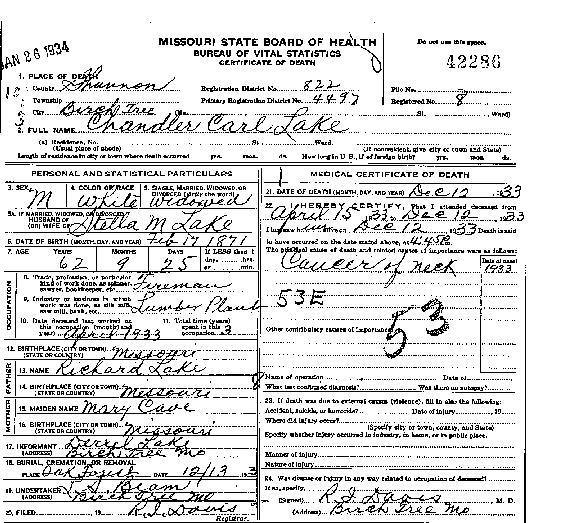 JAN 26 1934
MISSOURI STATE BOARD OF HEALTH
BUREAU OF VITAL STATISTICS
CERTIFICATE OF DEATH
Do not use this space.
42286
1. PLACE OF DEATH
County Shannon Registration District No. 822 File No.
Township Primary Registration District No. 4497 Registered No. 8
City Birch Tree No. St. Ward)
2. FULL NAME Chandler Carl Lake
(a) Residence, No. St. Ward.
(Usual place of abode) (If nonresident, give city or town and State)
Length of residence in city or town where death occurred yrs. mos. ds. How long in U.S., if of foreign birth? yrs. mos. ds.
PERSONAL AND STATISTICAL PARTICULARS
3. SEX M
4. COLOR OR RACE White
5. SINGLE, MARRIED, WIDOWED, OR DIVORCED (write the word) Widowed
5A. IF MARRIED, WIDOWED, OR DIVORCED
HUSBAND OF
(OR) WIFE OF Stella M Lake
6. DATE OF BIRTH (MONTH, DAY, AND YEAR) Feb 17 1871
7. AGE YEARS 62 MONTHS 9 DAYS 25 If LESS than 1 day, hrs. or min.
OCCUPATION
8. Trade, profession, or particular kind of work done, as spinner, sawyer, bookkeeper, etc. Fireman
9. Industry or business in which work was done, as silk mill, saw mill, bank, etc. Lumber Plant
10. Date deceased last worked at this occupation (month and year) April 1933
11. Total time (years) spent in this occupation 3
12. BIRTHPLACE (CITY OR TOWN)
(STATE OR COUNTRY) Missouri
FATHER
13. NAME Richard Lake
14. BIRTHPLACE (CITY OR TOWN)
(STATE OR COUNTRY) Missouri
MOTHER
15. MAIDEN NAME Mary Cave
16. BIRTHPLACE (CITY OR TOWN)
(STATE OR COUNTRY) Missouri
17. INFORMANT Lake
(ADDRESS) Birch Tree Mo
18. BURIAL, CREMATION, OR REMOVAL
PLACE Oak Forest DATE 12/13 193
19. UNDERTAKER Beam
(ADDRESS) Birch Tree Mo
20. FILED 19 R.I. Davis
Registrar.
MEDICAL CERTIFICATE OF DEATH
21. DATE OF DEATH (MONTH, DAY, AND YEAR) Dec 12 1933
22. I HEREBY CERTIFY, That I attended deceased from
April 15 1933 to Dec 12 1933
I last saw Dec 12 1933 Death is said
to have occurred on the date stated above, at
The principal cause of death and related causes of importance were as follows:
Date of onset
Cancer of neck 1933
53E
53
Other contributory causes of importance:
Name of operation Date of
What test confirmed diagnosis? Was there an autopsy?
23. If death was due to external causes (violence), fill in also the following:
Accident, suicide, or homicide? Date of injury 19
Where did injury occur?
(Specify city or town, county, and State)
Specify whether injury occurred in industry, in home, or in public place.
Manner of injury
Nature of injury
24. Was disease or injury in any way related to occupation of deceased?
If so, specify
(Signed) R.I. Davis M. D.
(Address) Birch Tree Mo